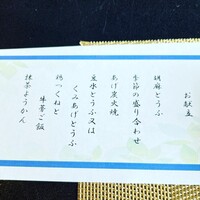 お献立
胡麻とうふ
季節の盛り合わせ
あげ炭火焼
豆水とうふ又は
くみあげとうふ
鶏つくねと
生麩ご飯
抹茶ようかん